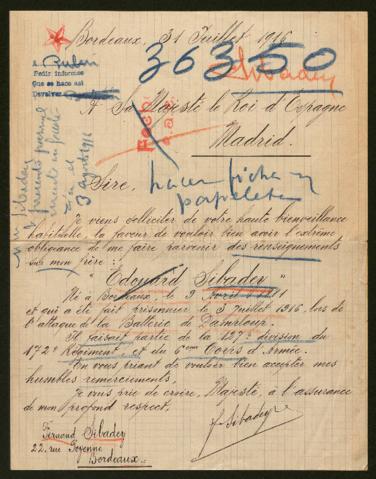 Bordeaux, 31 Juillet 1916
36350
Sibadey
A Ruben
Pedir informes
Que se haga así
Devolver
A Sa Majesté le Roi d'Espagne
Madrid.
Sire,
hacer ficha y
papeleta
3 agosto 1916
Je viens solliciter de votre haute bienveillance
habituelle, la faveur de vouloir bien avoir l'extrême
obligeance de me faire parvenir des renseignements
sur mon frère :
"Edouard Sibadey"
Né à Bordeaux, le 9 Avril
et qui a été fait prisonnier le 3 Juillet 1916, lors de
l'attaque de la Batterie de Damloup.
Il faisait partie de la 127e division du
172e Régiment et du 6ème Corps d'Armée.
En vous priant de vouloir bien accepter mes
humbles remerciements,
Je vous prie de croire, Majesté, à l'assurance
de mon profond respect.
f. Sibadey
Fernand Sibadey
22, rue Goyenne
Bordeaux.